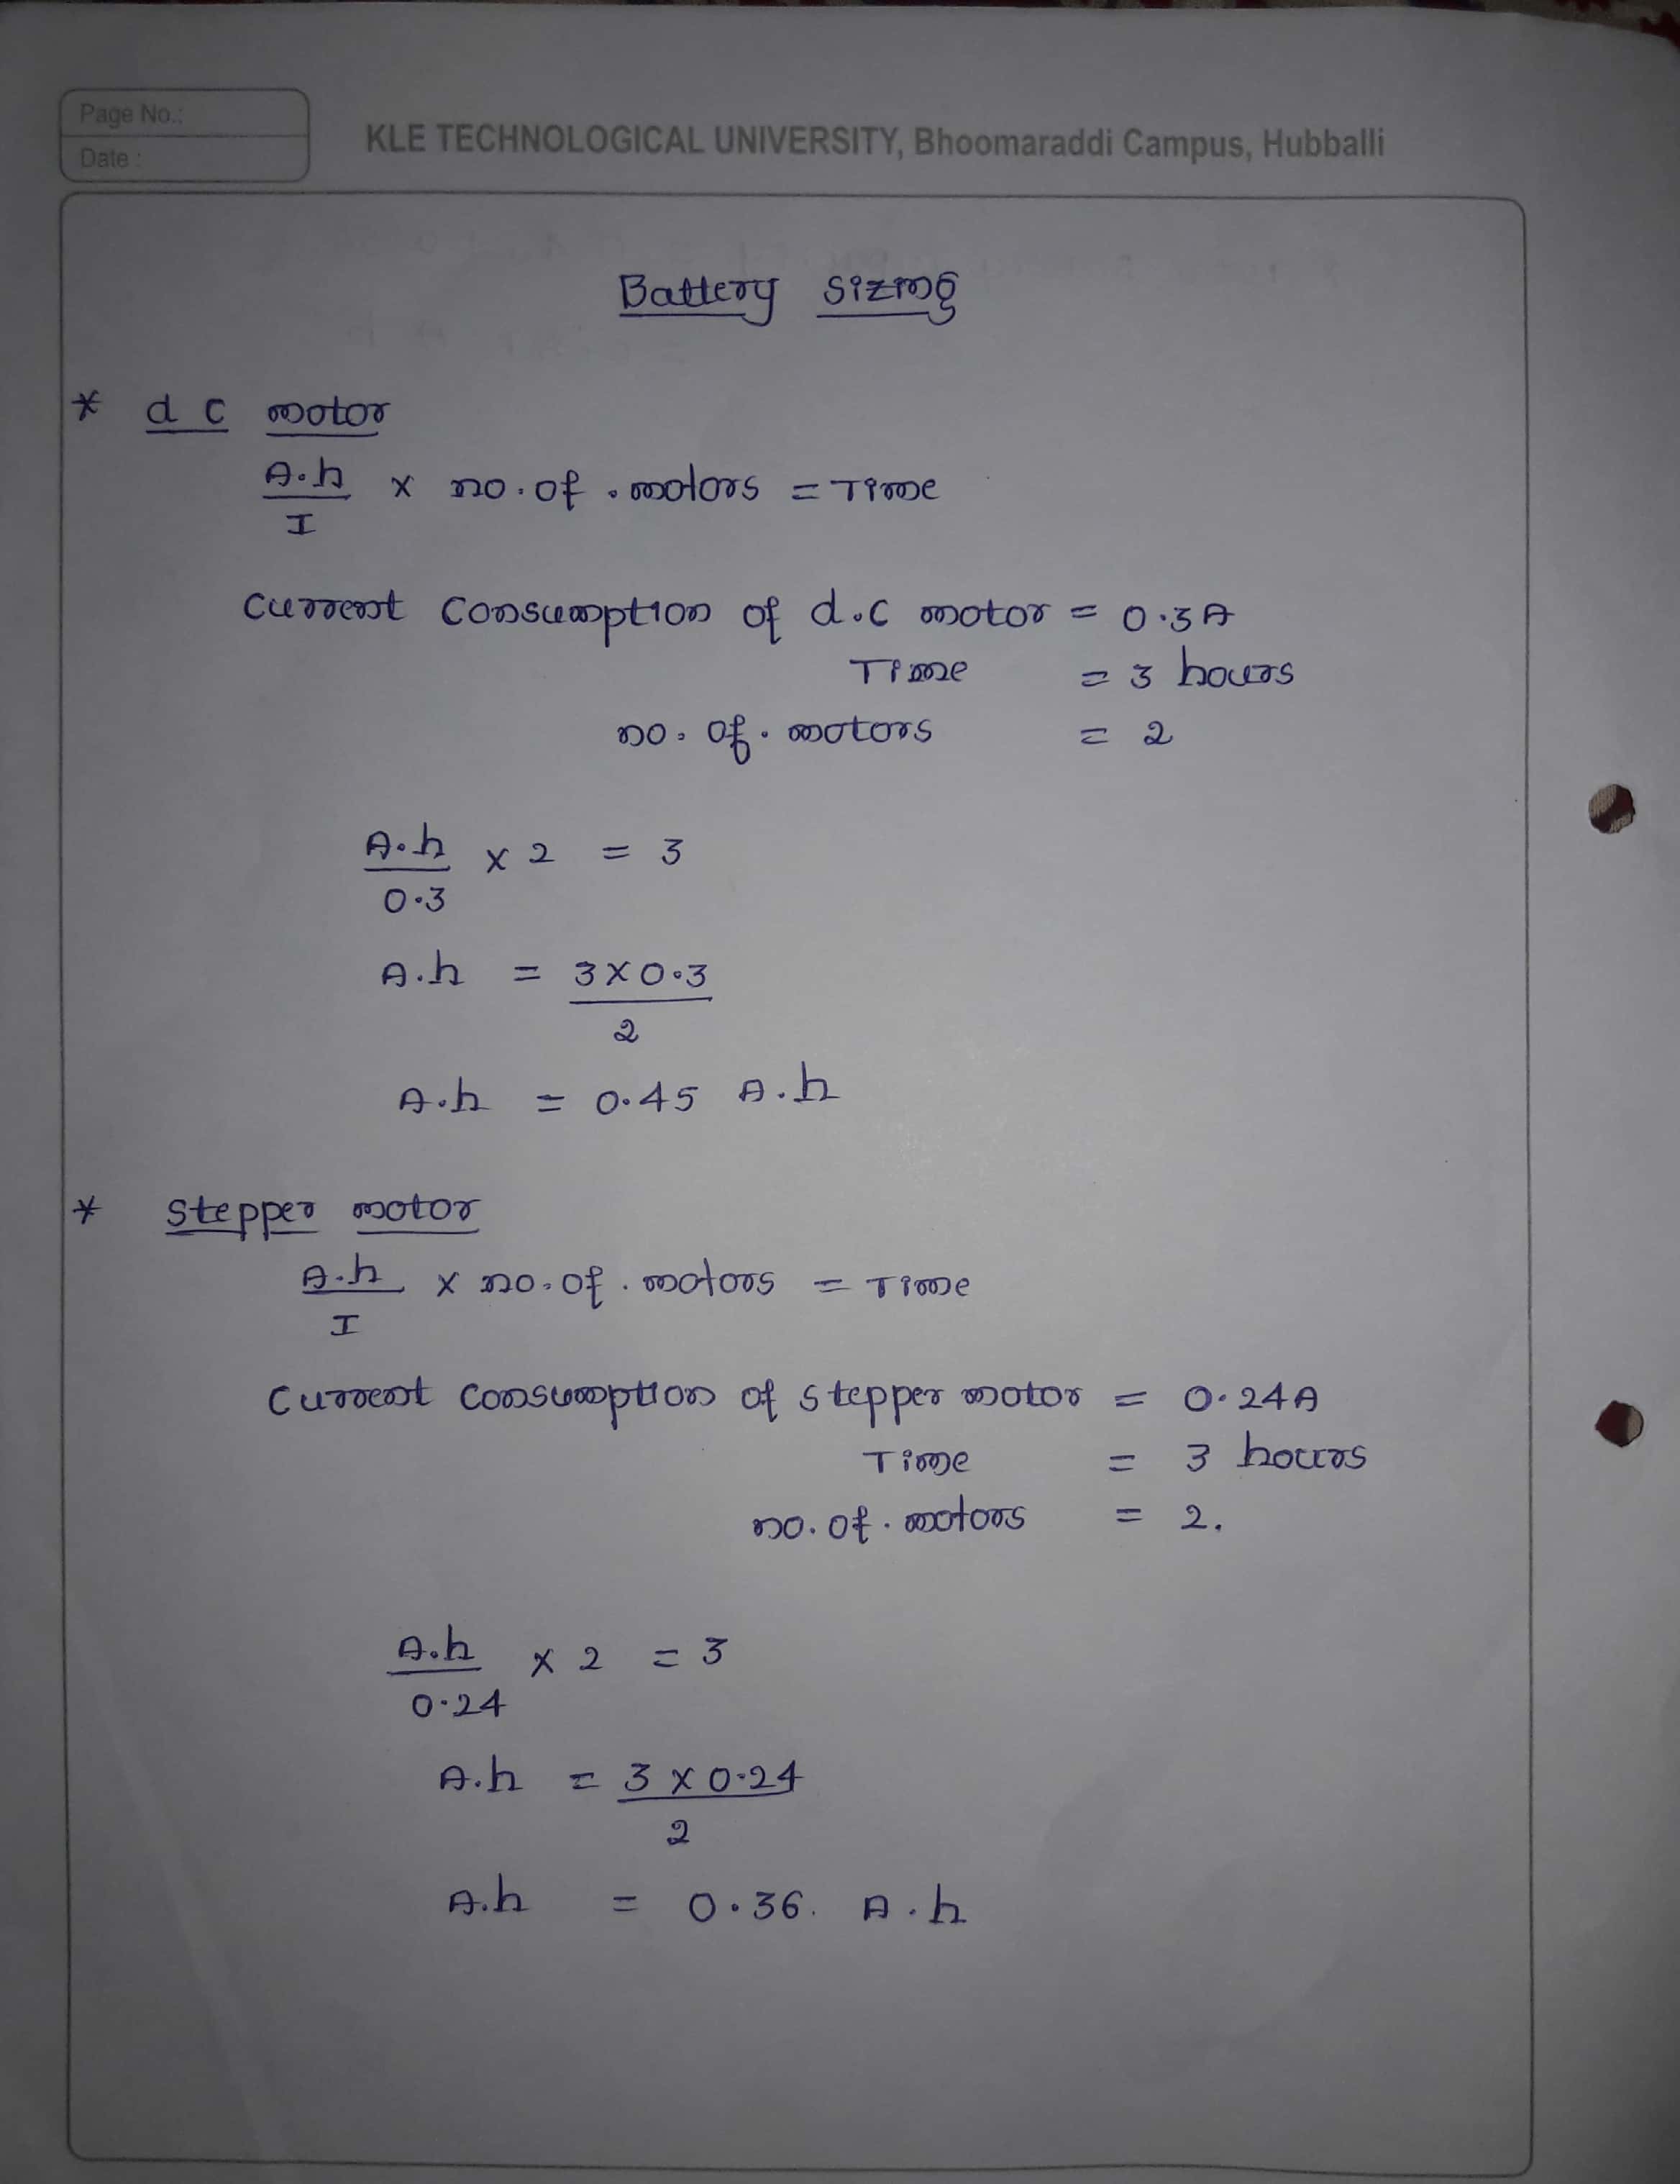 Page No.:
Date :
KLE TECHNOLOGICAL UNIVERSITY, Bhoomaraddi Campus, Hubballi
Battery sizing
* d c motor
A.h / I x no.of.motors = Time
Current consumption of d.c motor = 0.3A
Time = 3 hours
no. of. motors = 2
A.h / 0.3 x 2 = 3
A.h = 3 X 0.3 / 2
A.h = 0.45 A.h
* stepper motor
A.h / I x no.of.motors = Time
Current consumption of stepper motor = 0.24A
Time = 3 hours
no.of.motors = 2.
A.h / 0.24 x 2 = 3
A.h = 3 x 0.24 / 2
A.h = 0.36. A.h